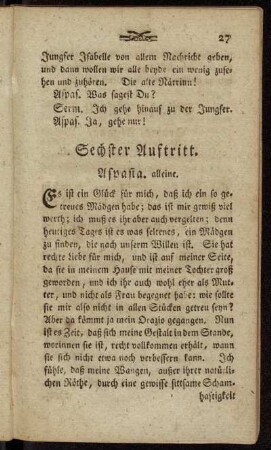 27
Jungfer Isabelle von allem Nachricht geben,
und dann wollen wir alle beyde ein wenig zuse-
hen und zuhören. Die alte Närrinn!
Aspas. Was sagest Du?
Serm. Ich gehe hinauf zu der Jungfer.
Aspas. Ja, gehe nur!
Sechster Auftritt.
Aspasia. alleine.
Es ist ein Glück für mich, daß ich ein so ge-
treues Mädgen habe; das ist mir gewiß viel
werth; ich muß es ihr aber auch vergelten; denn
heutiges Tages ist es was seltenes, ein Mädgen
zu finden, die nach unserm Willen ist. Sie hat
rechte Liebe für mich, und ist auf meiner Seite,
da sie in meinem Hause mit meiner Tochter groß
geworden, und ich ihr auch wohl eher als Mut-
ter, und nicht als Frau begegnet habe; wie sollte
sie mir also nicht in allen Stücken getreu seyn?
Aber da kömmt ja mein Orazio gegangen. Nun
ist es Zeit, daß sich meine Gestalt in dem Stande,
worinnen sie ist, recht vollkommen erhält, wann
sie sich nicht etwa noch verbessern kann. Ich
fühle, daß meine Wangen, außer ihrer natürli-
chen Röthe, durch eine gewisse sittsame Scham-
haftigkeit